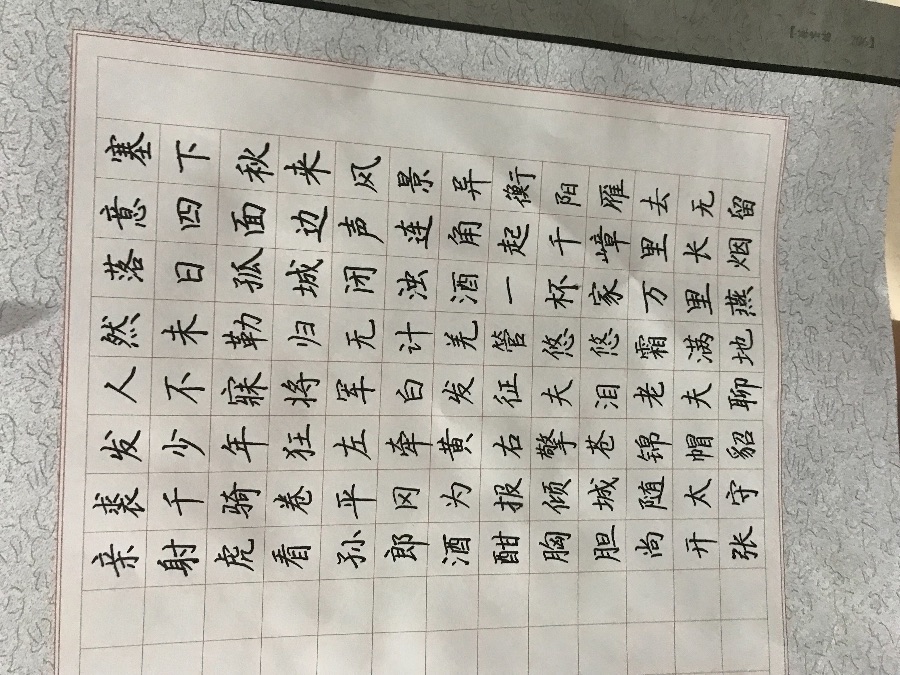 塞下秋来风景异衡阳雁去无留
意四面边声连角起千嶂里长烟
落日孤城闭浊酒一杯家万里燕
然未勒归无计羌管悠悠霜满地
人不寐将军白发征夫泪老夫聊
发少年狂左牵黄右擎苍锦帽貂
裘千骑卷平冈为报倾城随太守
亲射虎看孙郎酒酣胸胆尚开张